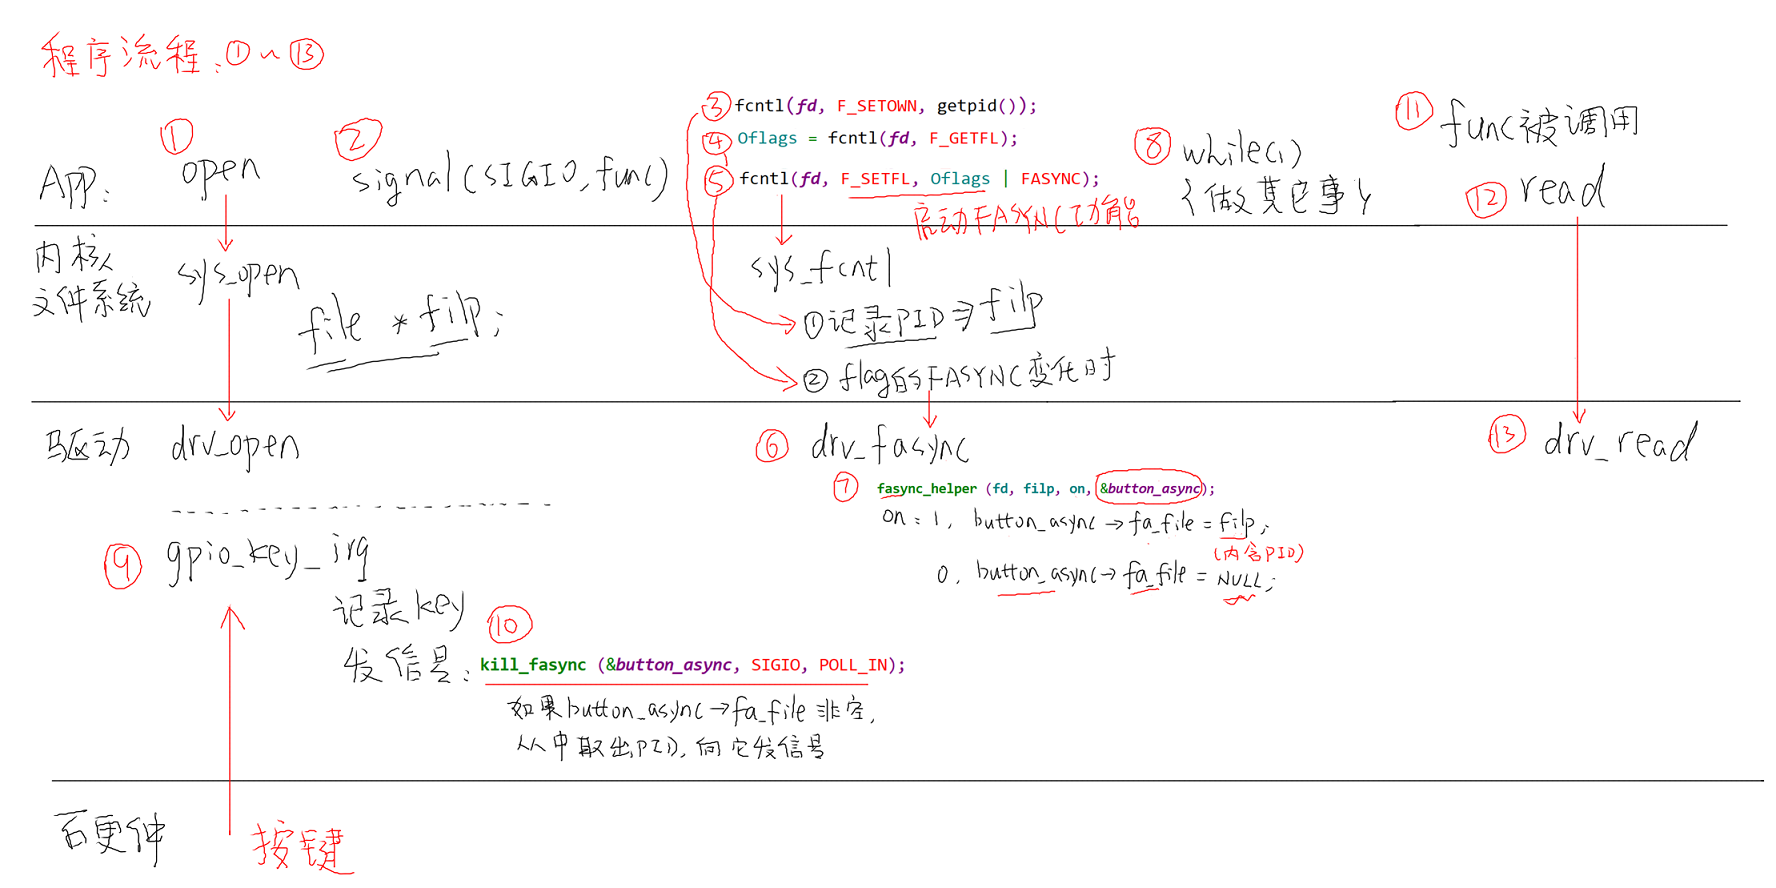 程序流程:①~⑬
① open
② signal(SIGIO,func)
③ fcntl(fd, F_SETOWN, getpid());
④ Oflags = fcntl(fd, F_GETFL);
⑤ fcntl(fd, F_SETFL, Oflags | FASYNC);
启动FASYNC功能
⑧ while(1)
{做其它事}
⑪ func被调用
⑫ read
APP:
内核
文件系统
sys_open
file * filp;
sys_fcntl
①记录PID⇒filp
②flag的FASYNC变化时
驱动
drv_open
⑥ drv_fasync
⑦ fasync_helper (fd, filp, on, &button_async);
on:1, button_async→fa_file = filp;
(内含PID)
0, button_async→fa_file = NULL;
⑬ drv_read
⑨ gpio_key_irq
记录key
发信号:
⑩ kill_fasync (&button_async, SIGIO, POLL_IN);
如果button_async→fa_file非空,
从中取出PID,向它发信号
硬件
按键